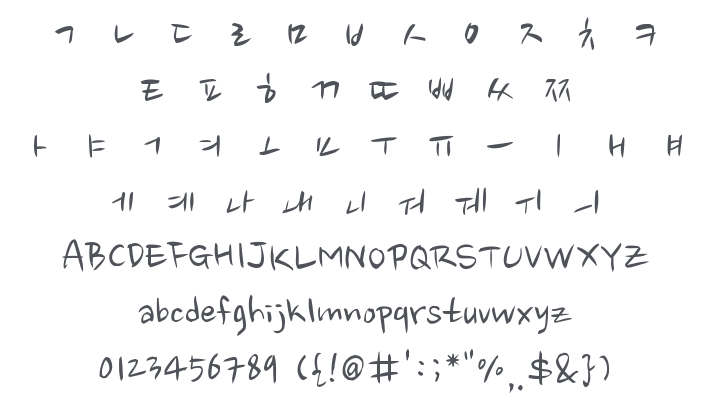 ㄱ ㄴ ㄷ ㄹ ㅁ ㅂ ㅅ ㅇ ㅈ ㅊ ㅋ
ㅌ ㅍ ㅎ ㄲ ㄸ ㅃ ㅆ ㅉ
ㅏ ㅑ ㅓ ㅕ ㅗ ㅛ ㅜ ㅠ ㅡ ㅣ ㅐ ㅒ
ㅔ ㅖ ㅘ ㅙ ㅚ ㅝ ㅞ ㅟ ㅢ
ABCDEFGHIJKLMNOPQRSTUVWXYZ
abcdefghijklmnopqrstuvwxyz
0123456789 ({!@#':;*"%,.$&})